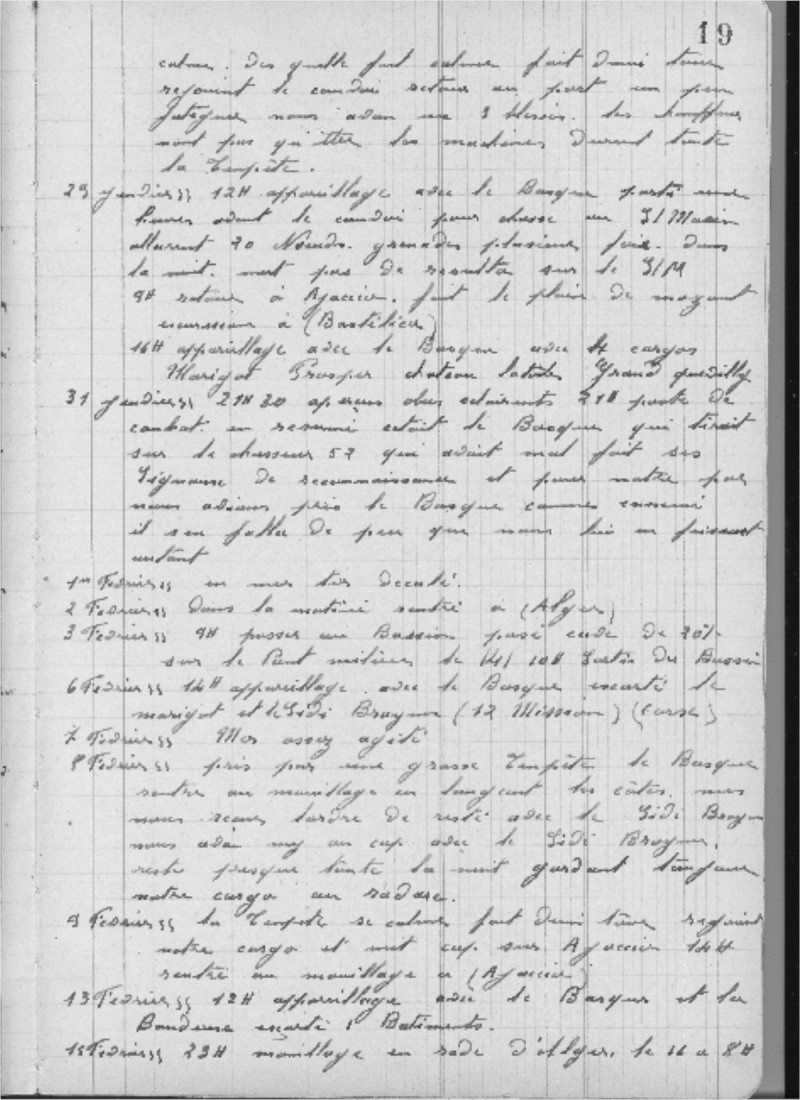 19
calme. des quelle fut calme fait demi tour
rejoint le convoi retour au port un peu
fatiguer nous avon eu 3 blessis. les chauffeurs
nont pas quitter les machines durent toute
la Tempête.
29 Jenvier 44 12H appareillage avec le Basque partis
heures avant le convoi pour chasse au S/Marin
allurent 20 Nœuds. grenades plusieurs fois. dans
la nuit. mert pas de resulta sur le S/M
9H retour à Ajaccio. fait le plein de mazout
excurssion à (Bastélica)
16H appareillage avec le Basque avec 4 cargos
Marigot Prosper chateau latour Grand quevilly
31 Jenvier 44 21H30 aperçus obus eclairents 21H poste de
combat. en resumé cetait le Basque qui tirait
sur le chasseur 52 qui avait mal fait ses
Signaux de reconnaissance et pour notre par
nous avions pris le Basque comme ennemi
il sen falla de peu que nous lui en faissent
autant
1er Fevrier 44 en mer tir decalé.
2 Fevrier 44 dans la matiné rentré à (Alger)
3 Fevrier 44 9H passer au Bassin posé de
sur le Pont milieu le 4/ 10H Sortie du Bassin
6 Fevrier 44 14H appareillage avec le Basque escorté le
marigot et le Sidi Braym (12 Mission) (Corse)
7 Fevrier 44 Mer assez agité
8 Fevrier 44 pris par une grosse Tempête le Basque
rentre au mouillage en longeant les côtes. mes
nous reçus lordre de resté avec le Sidi Braym
nous avon my au cap avec le Sidi Braym,
reste presque toute la nuit gardant toujour
notre cargo au radare.
9 Fevrier 44 la Tempete se calme fait demi tour rejoint
notre cargo et met cap sur Ajaccio 14H
rentré au mouillage a (Ajaccio)
13 Fevrier 44 12H appareillage avec le Basque et la
Boudeuse escorté Batiments.
15 Fevrier 44 23H mouillage en rade d'Alger. le 16 a 8H